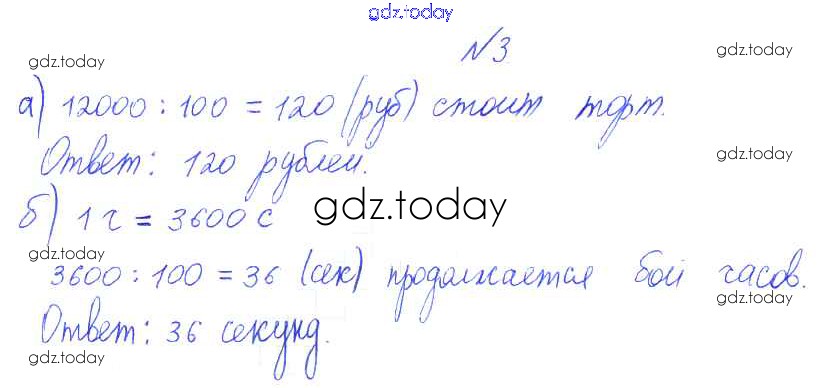 gdz.today
№3
gdz.today
gdz.today
а) 12000 : 100 = 120 (руб) стоит торт.
Ответ: 120 рублей.
gdz.today
б) 1 ч = 3600 с
gdz.today
gdz.today
3600 : 100 = 36 (сек) продолжается бой часов.
gdz.today
Ответ: 36 секунд.
gdz.today